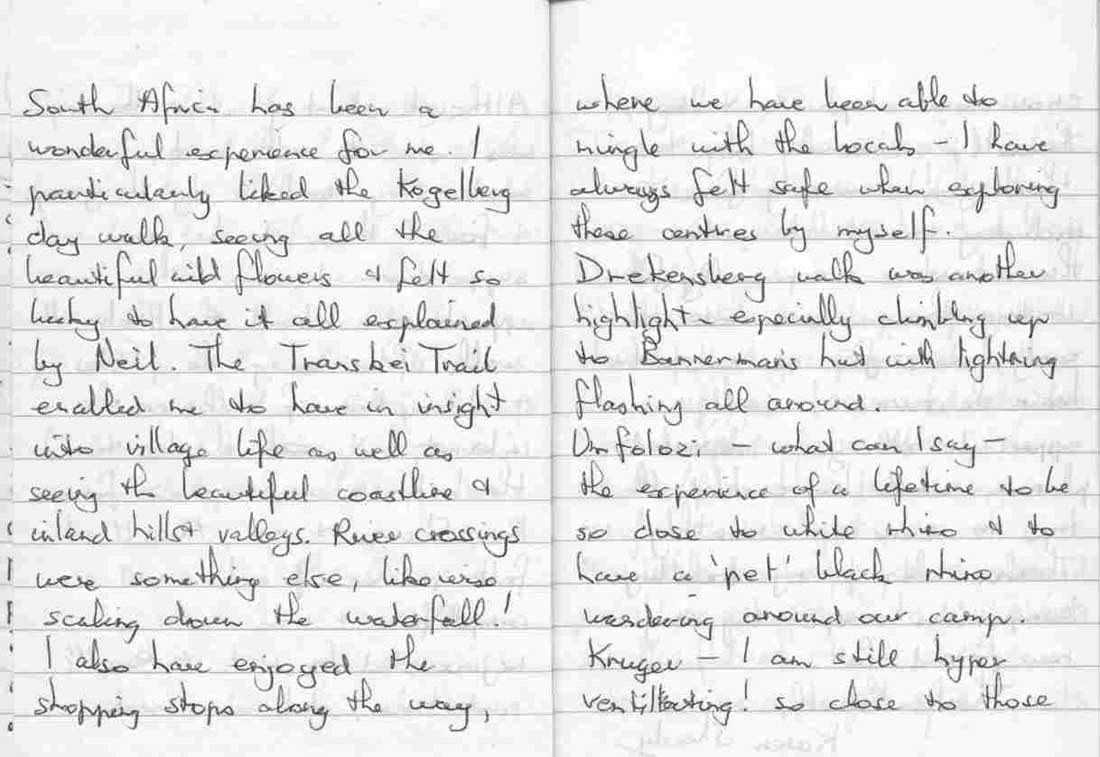 South Africa has been a
wonderful experience for me. I
particularly liked the Kogelberg
day walk, seeing all the
beautiful wild flowers & felt so
lucky to have it all explained
by Neil. The Transkei Trail
enabled me to have in insight
into village life as well as
seeing the beautiful coastline &
inland hills & valleys. River crossings
were something else, likewise
scaling down the waterfall!
I also have enjoyed the
shopping stops along the way,
where we have been able to
mingle with the locals – I have
always felt safe when exploring
these centres by myself.
Drekensberg walk was another
highlight – especially climbing up
to Bannermans hut with lightning
flashing all around.
Umfolozi – what can I say –
the experience of a lifetime to be
so close to white rhino & to
have a 'pet' black rhino
wandering around our camp.
Kruger – I am still hyper
ventiltating! so close to those